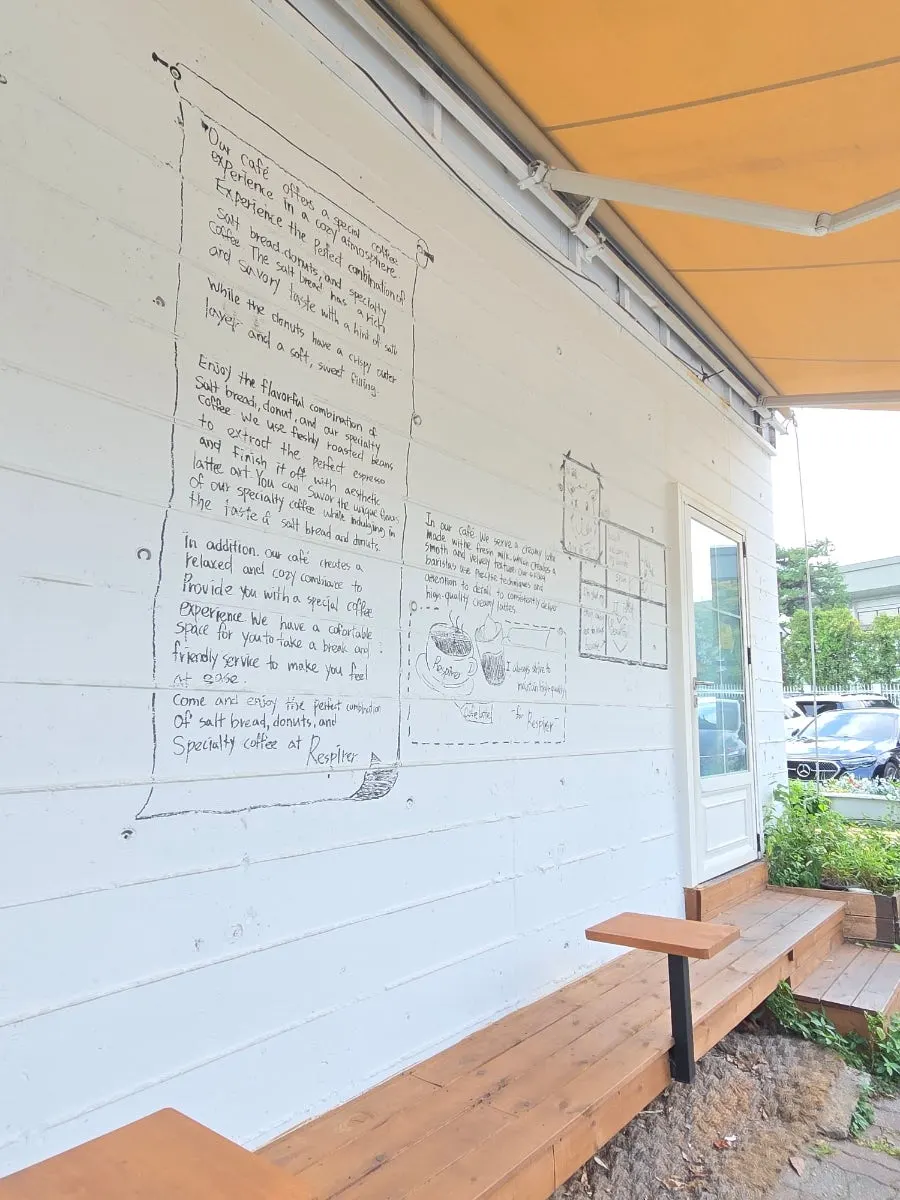 Our café offers a special coffee
experience in a cozy atmosphere.
Experience the Perfect combination of
Salt bread, donuts, and specialty
coffee The salt bread has a rich
and savory taste with a hint of salt
While the donuts have a crispy outer
layer and a soft, sweet filling.
Enjoy the flavorful combination of
Salt bread, donut, and our specialty
coffee We use freshly roasted beans
to extract the perfect espresso
and finish it off with aesthetic
latte art. You can Savor the unique
of our specialty coffee while indulging in
the taste salt bread and donuts.
In addition. our café creates a
relaxed and cozy
Provide you with a special coffee
experience We have a cofortable
space for you to take a break and
friendly service to make you feel
At ease.
Come and enjoy the perfect combination
Of salt bread, donuts, and
Specialty coffee at Respirer
In our café, We serve a creamy latte
made with fresh milk, which creates a
smoth and velvety texture. Our
baristas use Precise techniques and
attention to detail to consistently deliver
high-quality creamy lattes.
Respirer
I always strive to
maintain high-quality
Cafe latte
-for Respirer-